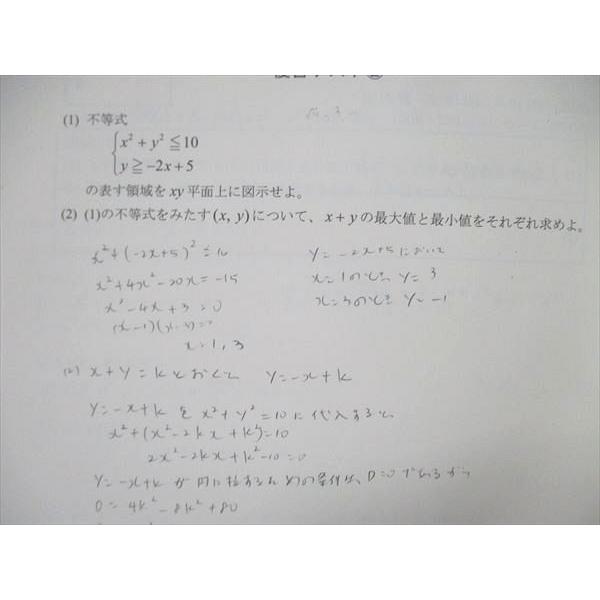 (1) 不等式
x² + y² ≦ 10
y ≧ −2x + 5
の表す領域を xy 平面上に図示せよ。
(2) (1)の不等式をみたす (x, y) について、 x + y の最大値と最小値をそれぞれ求めよ。
x² + (−2x+5)² = 10
x² + 4x² − 20x = −15
x² − 4x + 3 = 0
x = 1, 3
y = −2x+5 において
x = 1 のとき y = 3
x = 3 のとき y = −1
(2) x + y = k とおくと y = −x + k
y = −x + k を x² + y² = 10 に代入すると
x² + (x² − 2kx + k²) = 10
2x² − 2kx + k² − 10 = 0
y = −x + k が円に接するための条件は、D = 0 であるから
0 = 4k² − 8k² + 80